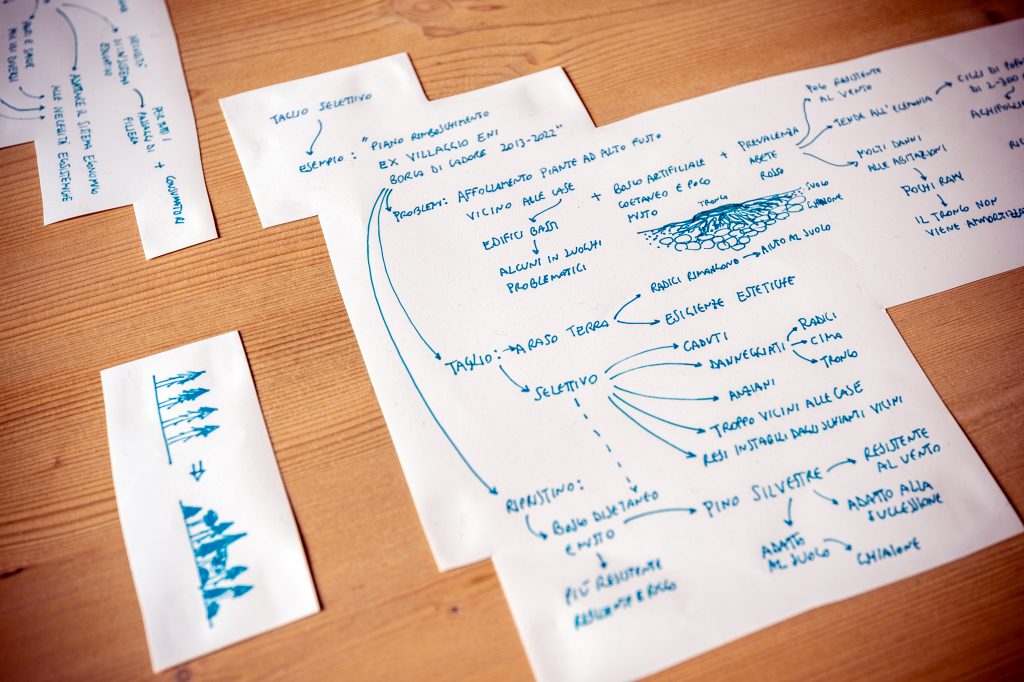 NECESSITÀ
DI UN SISTEMA
EDUCATIVO
ADATTARE IL SISTEMA ECONOMICO
ALLE NECESSITÀ ECOSISTEMICHE
PER TUTTI I
PASSAGGI DI
FILIERA
+ CONSUMATORI
TAGLIO SELETTIVO
ESEMPIO: "PIANO RIMBOSCHIMENTO
EX VILLAGGIO ENI
BORCA DI CADORE 2013-2022"
PROBLEMI: AFFOLLAMENTO PIANTE AD ALTO FUSTO
VICINO ALLE CASE
EDIFICI BASSI
ALCUNI IN LUOGHI
PROBLEMATICI
+ BOSCO ARTIFICIALE
COETANEO E POCO
MISTO
+ PREVALENZA
ABETE
ROSSO
POCO RESISTENTE
AL VENTO
TENDE ALL'EGEMONIA
CICLI DI
DI 2-300
MOLTI DANNI
ALLE ABITAZIONI
POCHI RAMI
IL TRONCO NON
VIENE AMMORTIZZATO
TRONCO
SUOLO
GHIAIONE
TAGLIO:
A RASO TERRA
RADICI RIMANGONO
AIUTO AL SUOLO
ESIGENZE ESTETICHE
SELETTIVO
CADUTI
DANNEGGIATI
RADICI
CIMA
TRONCO
ANZIANI
TROPPO VICINI ALLE CASE
RESI INSTABILI DAGLI SCHIANTI VICINI
RIPRISTINO:
BOSCO DISETANEO
E MISTO
PIÙ RESISTENTE
RESILIENTE E RICCO
PINO SILVESTRE
RESISTENTE
AL VENTO
ADATTO ALLA
SUCCESSIONE
ADATTO
AL SUOLO
GHIAIONE